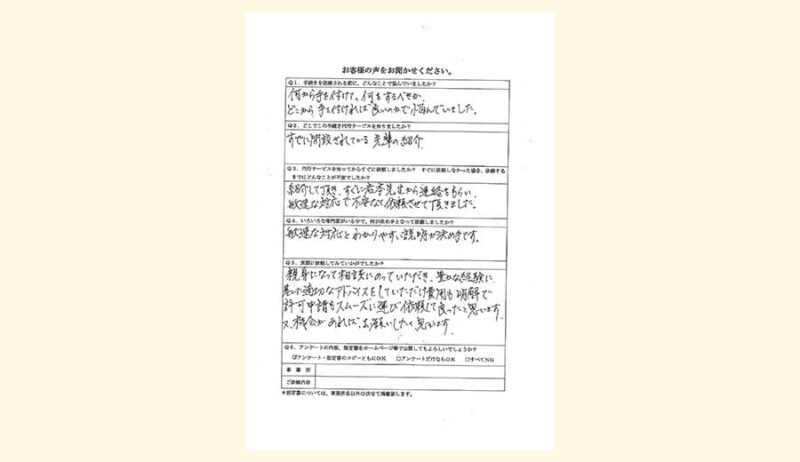 お客様の声をお聞かせください。
Q1．手続きを依頼される前に、どんなことで悩んでいましたか？
何から手を付けて、何をするべきか、
どこから手を付ければ良いのかで悩んでいました。
Q2．どこでこの手続き代行サービスを知りましたか？
すでに開設されている先輩の紹介
Q3．代行サービスを知ってからすぐに依頼しましたか？ すぐに依頼しなかった場合、依頼する
までにどんなことが不安でしたか？
紹介して頂き、すぐに岩本先生から連絡をもらい、
敏速な対応で不安なく依頼させて頂きました。
Q4．いろいろな専門家がいる中で、何が決め手となって依頼しましたか？
敏速な対応とわかりやすい説明が決め手です。
Q5．実際に依頼してみていかがでしたか？
親身になって相談にのっていただき、豊かな経験に
基いた適切なアドバイスをしていただけ費用も明解で
許可申請もスムーズに運び依頼して良かったと思います。
又、機会があれば、お願いしたと思います。
Q6．アンケートの内容、指定書をホームページ等で公開してもよろしいでしょうか？
☑アンケート・指定書のコピーともにOK □アンケートだけならOK □すべてNG
事業所
ご依頼内容
＊指定書については、事業所名以外は伏せて掲載致します。